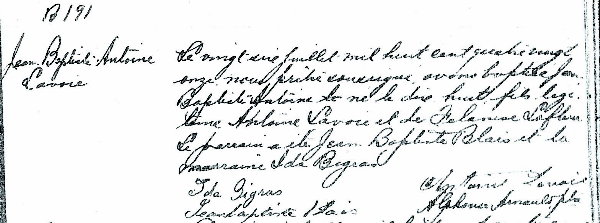 B 191
Jean Baptiste Antoine
Lavoie
Le vingt six juillet mil huit cent quatre vingt
onze nous prêtre soussigné avons baptisé Jean
Baptiste Antoine né le dix huit fils légi
time Antoine Lavoie et de Melanise Lafleur
Le parrain a été Jean Baptiste Blais et la
marraine Ida Bigras
Ida Bigras
Jean baptiste Blais
Antoine Lavoie
Alphonse Arnault ptre